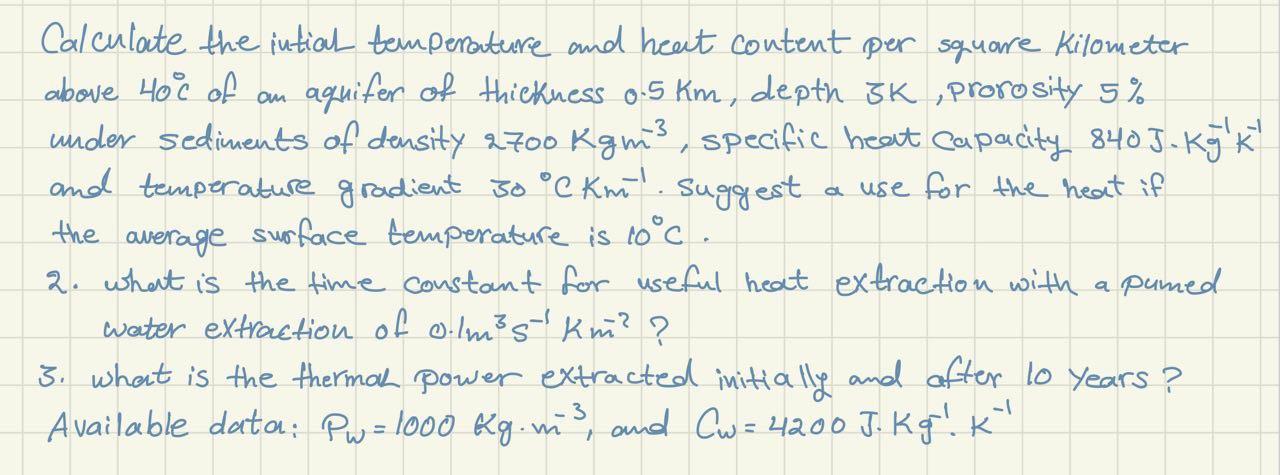 Calculate the intial temperature and heat content per square Kilometer
above 40°C of an aquifer of thickness 0.5 Km, depth 3K, prorosity 5%
under sediments of density 2700 Kgm⁻³, specific heat Capacity 840 J.Kg⁻¹K⁻¹
and temperature gradient 30 °C Km⁻¹. Suggest a use for the heat if
the average surface temperature is 10°C.
2. what is the time constant for useful heat extraction with a pumed
water extraction of 0.1m³s⁻¹ Km⁻² ?
3. what is the thermal power extracted initially and after 10 years?
Available data: Pw = 1000 Kg.m⁻³, and Cw = 4200 J.Kg⁻¹.K⁻¹